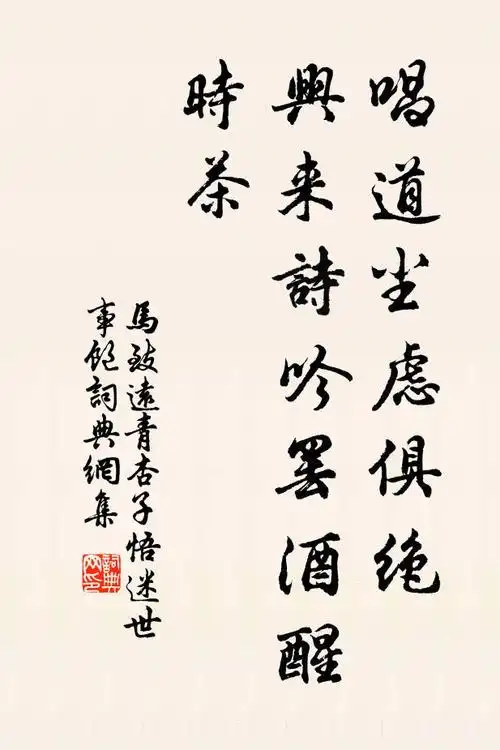 唱道尘虑俱绝
興来詩吟罢酒醒
時茶
馬致遠青杏子悟迷世
事飽詞典網集
詞典
网印